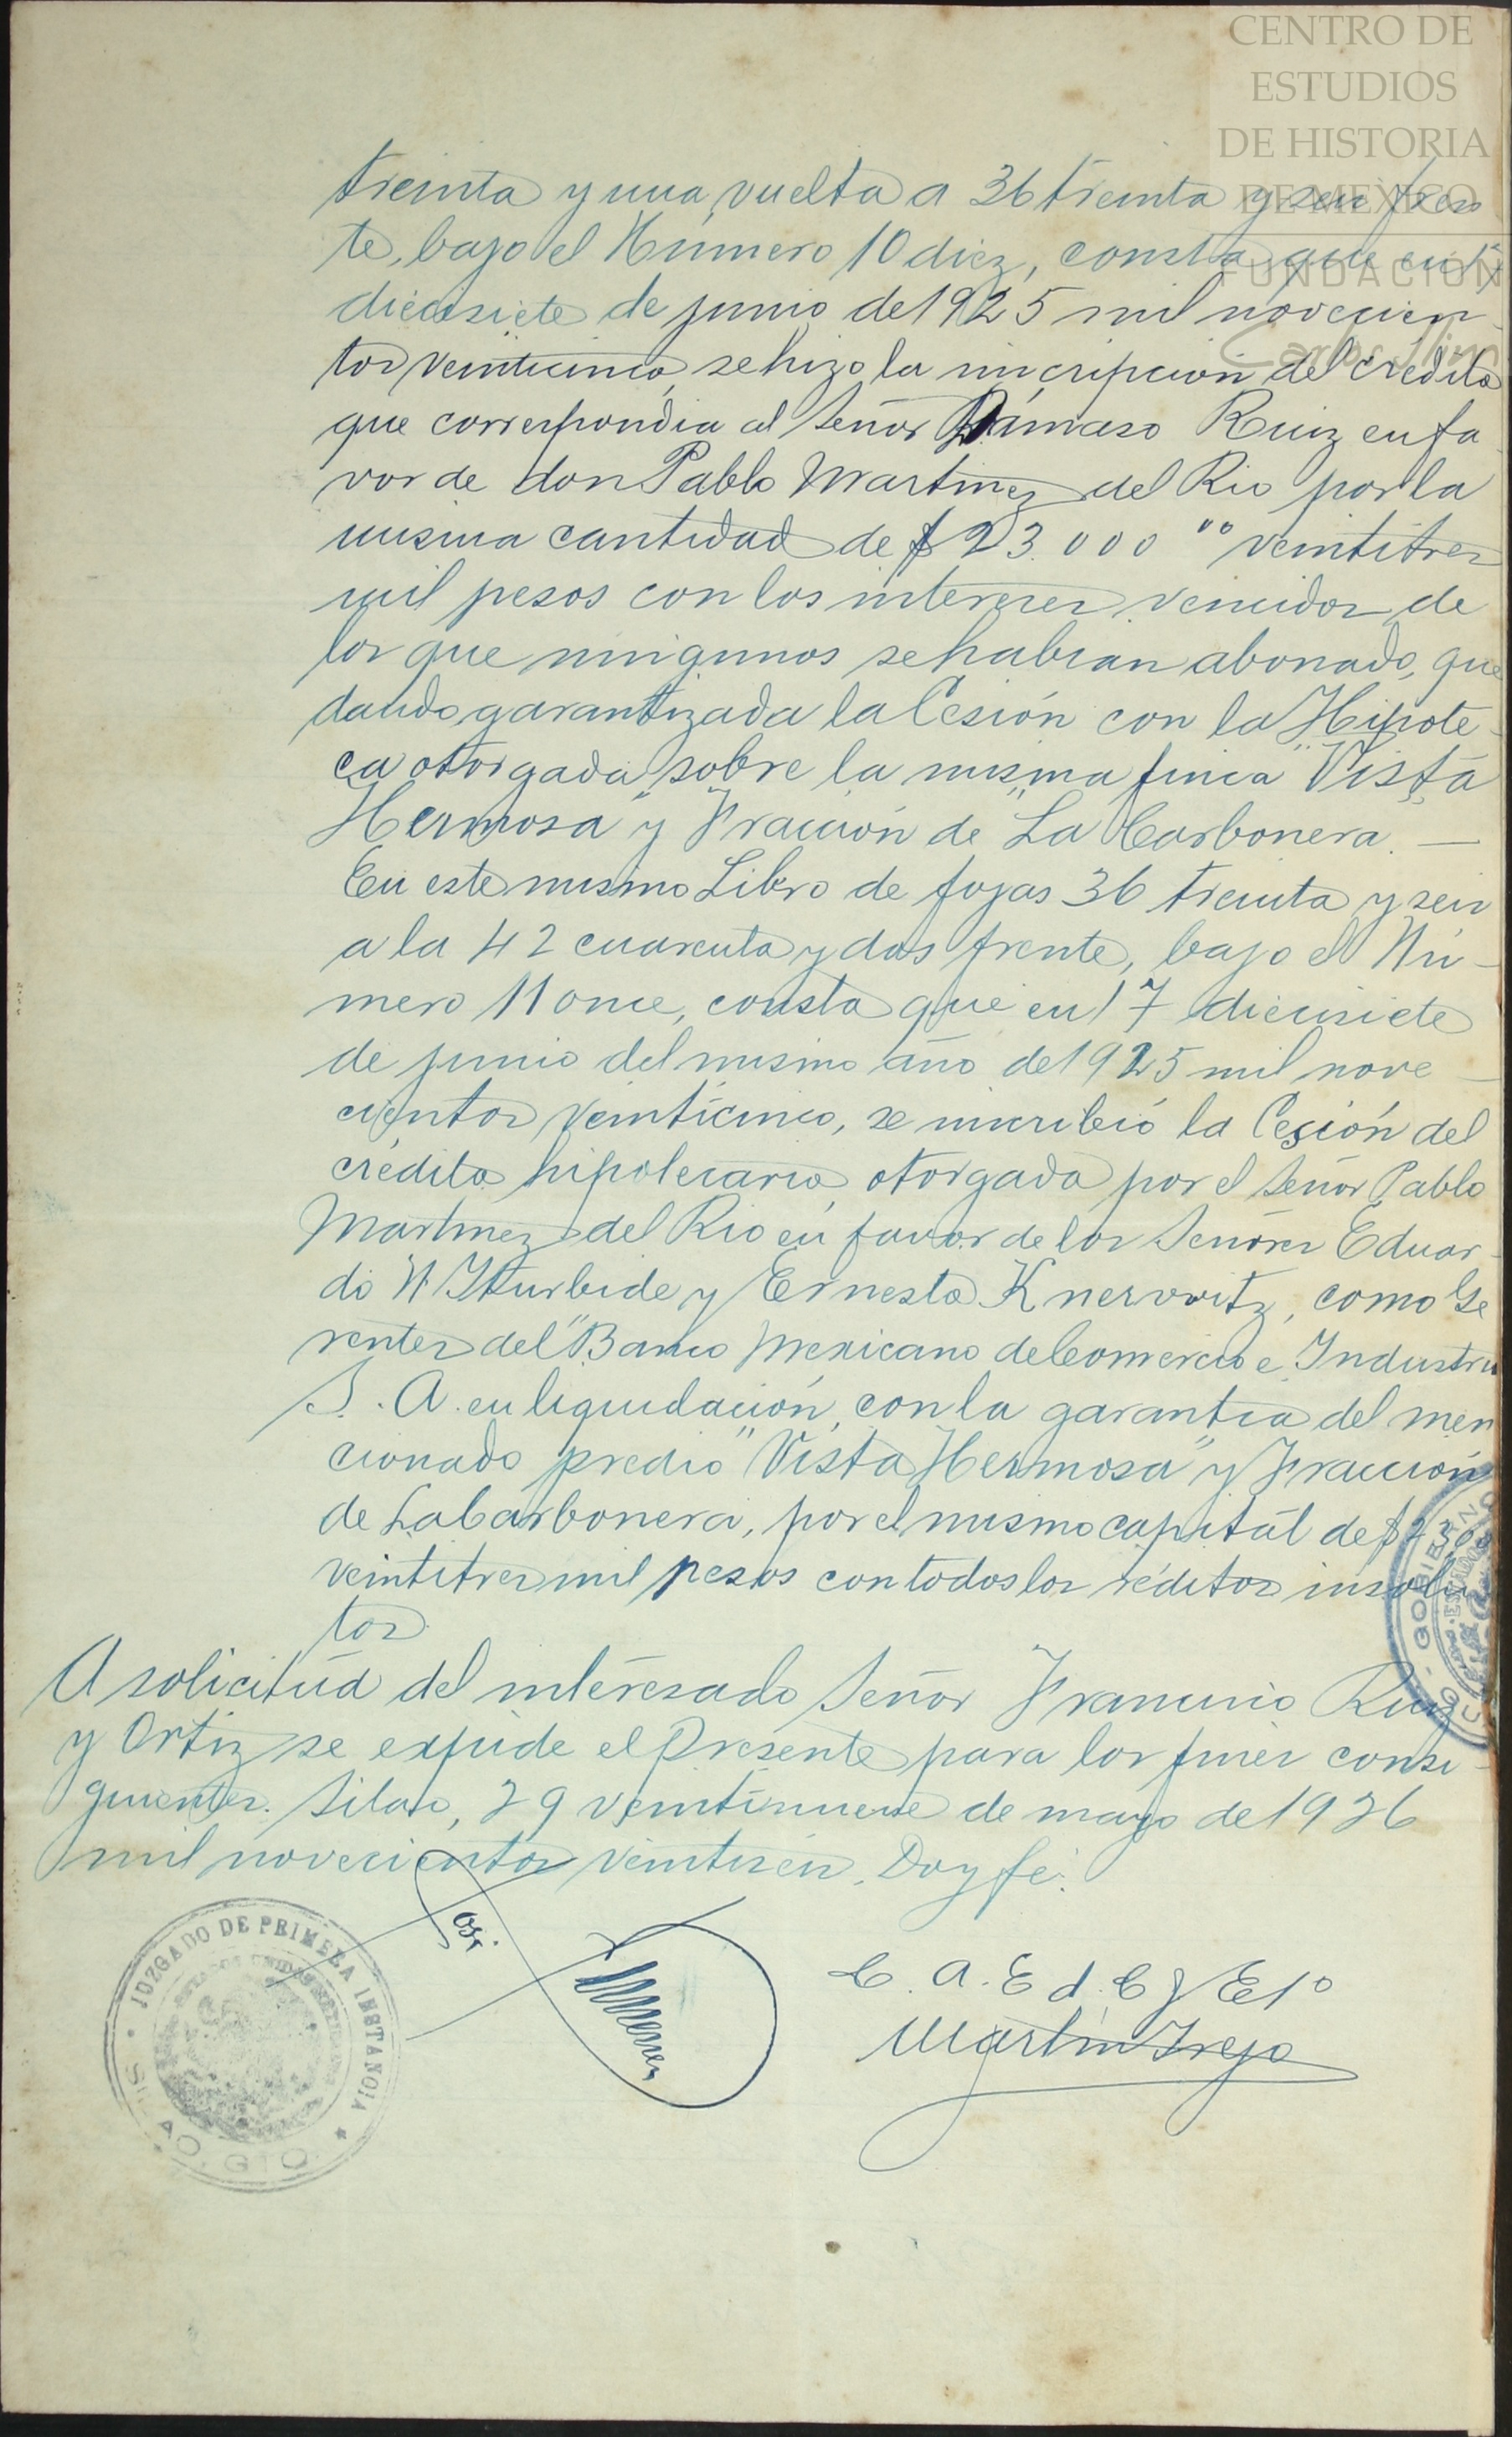 CENTRO DE
ESTUDIOS
DE HISTORIA
DE MEXICO
FUNDACIÓN
Carlos Slim
treinta y una vuelta a 36 treinta y seis fren
te, bajo el Número 10 diez, consta que en 17
diecisiete de junio de 1925 mil novecien-
tos veinticinco, se hizo la inscripción del crédito
que correspondia al Señor Dámaso Ruiz en fa
vor de don Pablo Martinez del Rio por la
misma cantidad de $23.000 °° veintitres
mil pesos con los intereses vencidos de
los que ningunos se habian abonado, que
dando garantizada la Cesión con la Hipote-
ca otorgada sobre la misma finca "Vista
Hermosa" y Fracción de "La Carbonera. —
En este mismo Libro de fojas 36 treinta y seis
a la 42 cuarenta y dos frente, bajo el Nú-
mero 11 once, consta que en 17 diecisiete
de junio del mismo año de 1925 mil nove-
cientos veinticinco, se inscribió la Cesión del
crédito hipotecario otorgada por el Señor Pablo
Martinez del Rio en favor de los Señores Eduar-
do N. Iturbide y Ernesto Knerwitz, como Ge
rentes del "Banco Mexicano de Comercio e Industria
S. A. en liquidación, con la garantia del men
cionado predio "Vista Hermosa" y Fracción
de La Carbonera, por el mismo capital de $23,000
veintitres mil pesos con todos los réditos insolu
tos.
A solicitud del interesado Señor Francisco Ruiz
y Ortiz se expide el presente para los fines consi-
guientes. Silao, 29 veintinueve de mayo de 1926
mil novecientos veintiseis. Doy fe.
José Jimenez
C. A. E d. C y E 1°
Martin Trejo
JUZGADO DE PRIMERA INSTANCIA
ESTADOS UNIDOS MEXICANOS
SILAO, GTO.
GOBIERNO
ESTADO